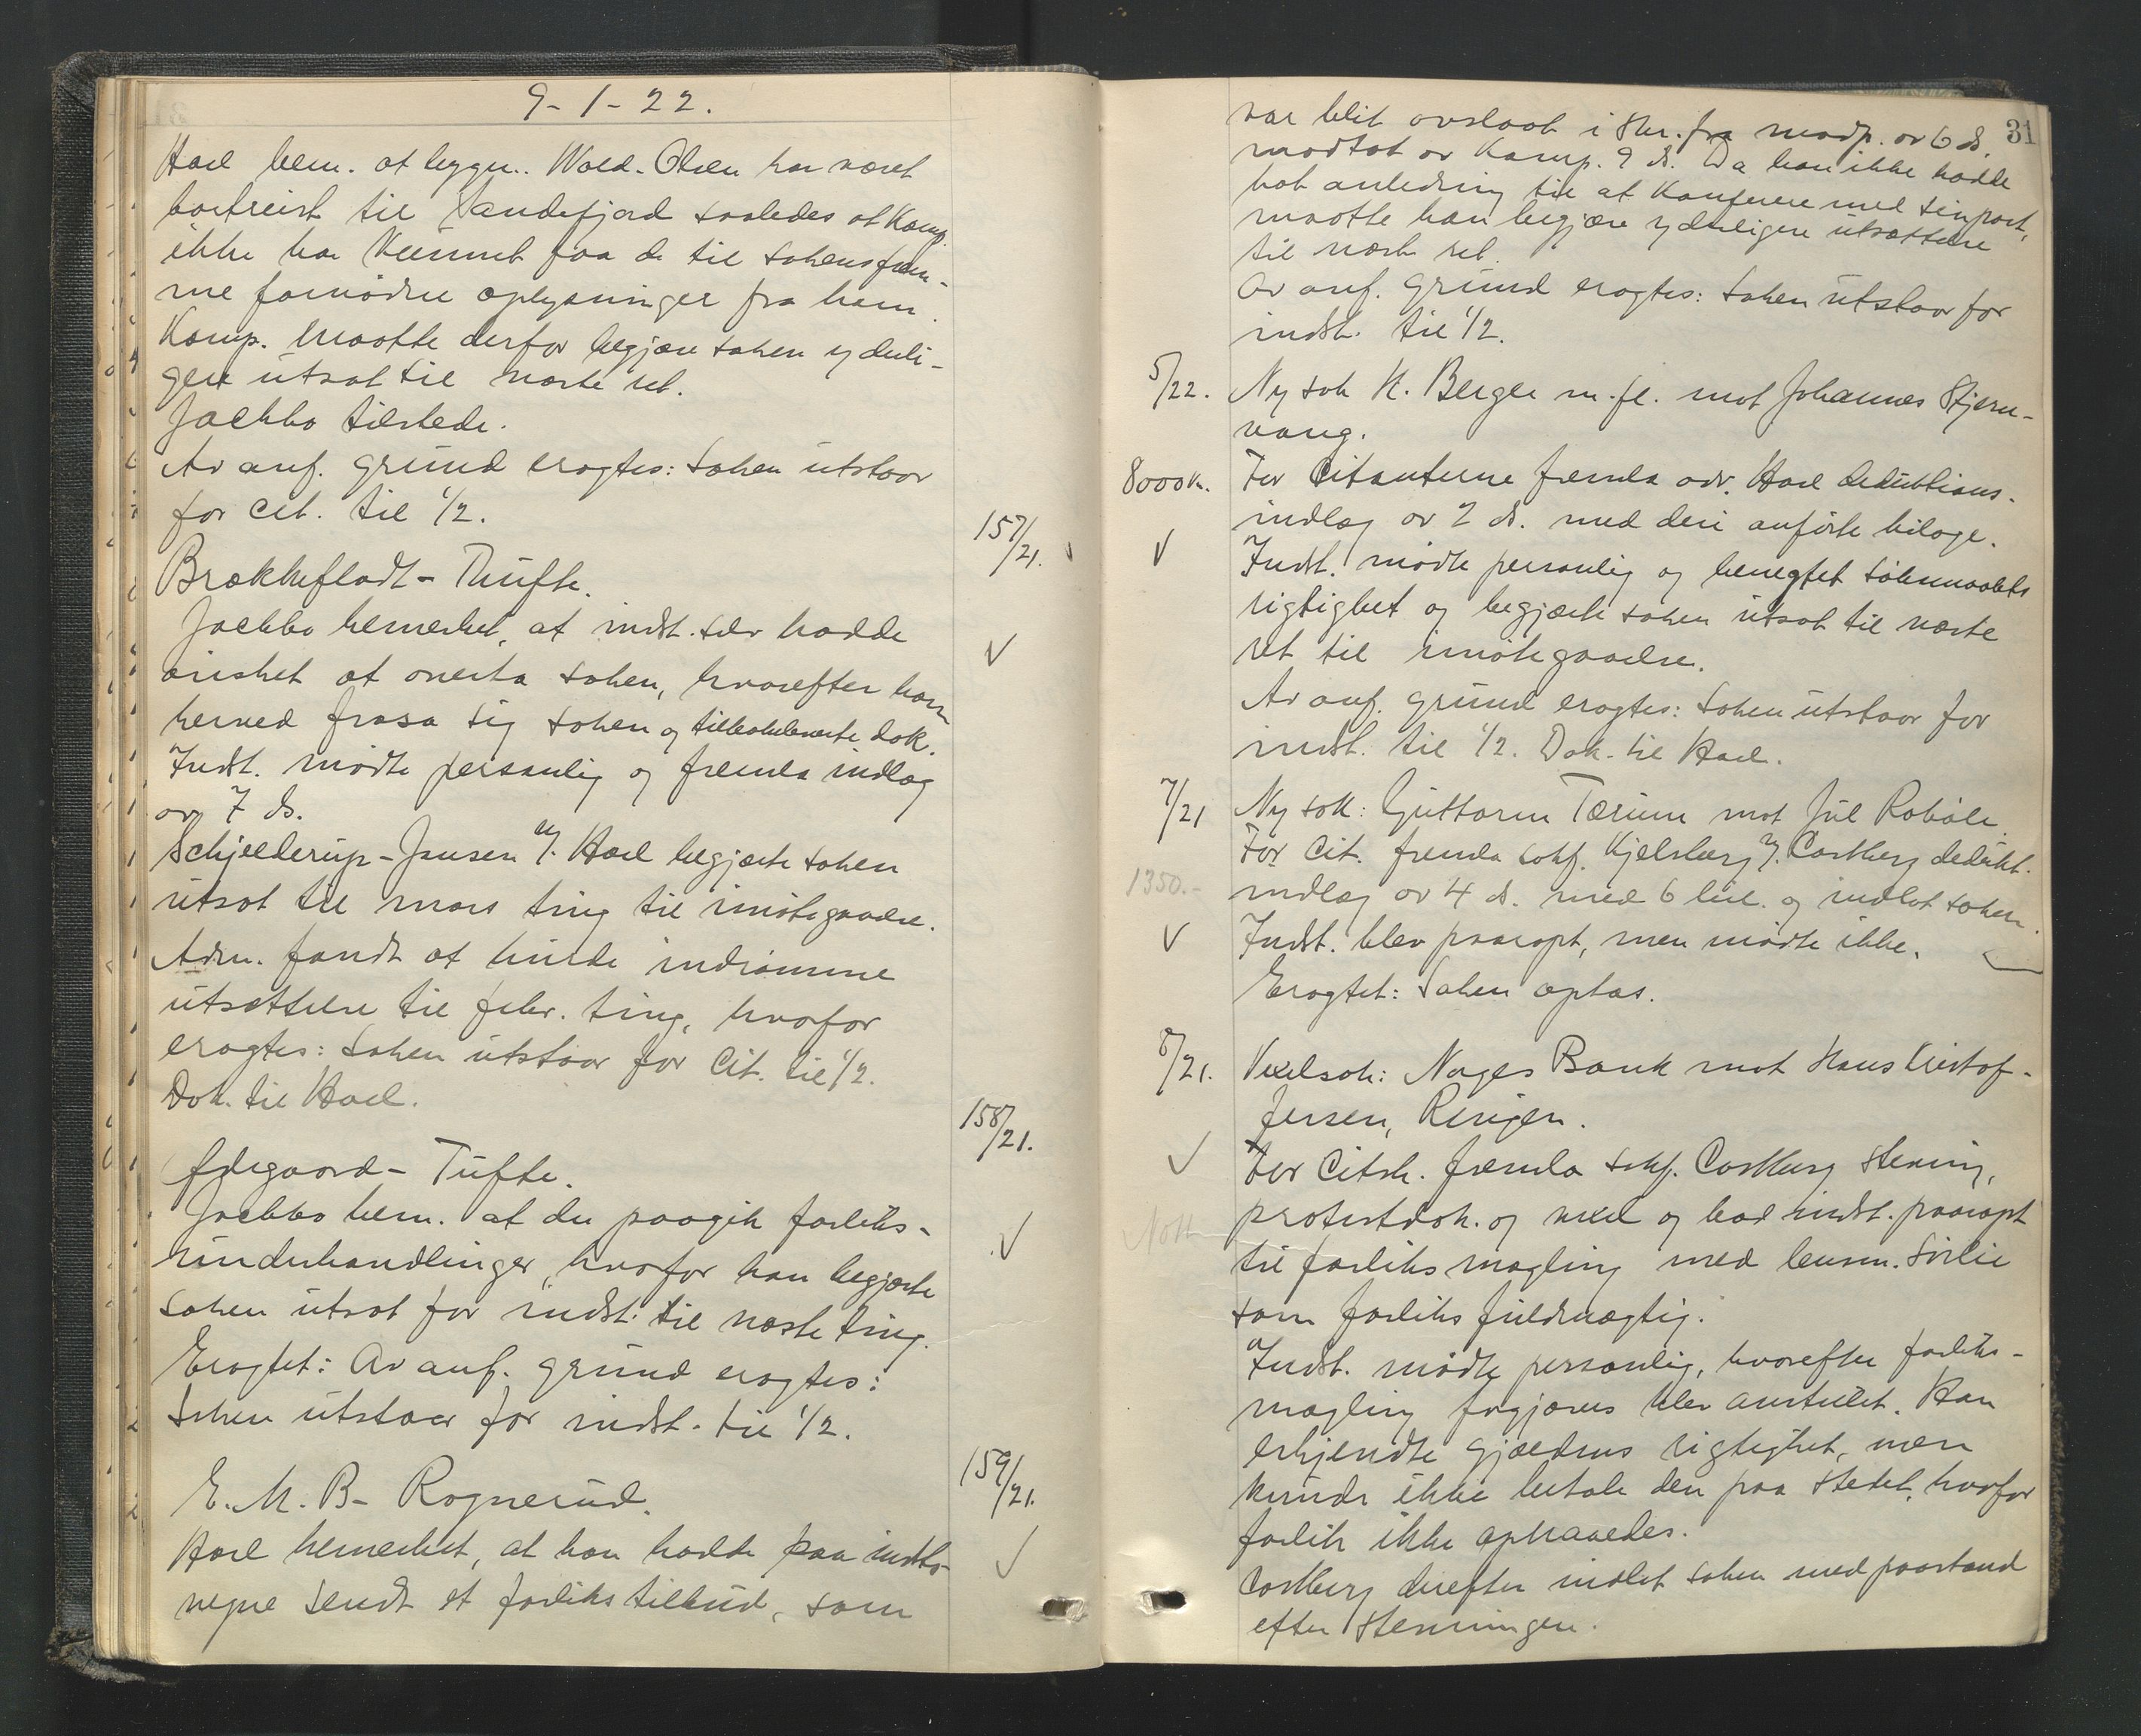 9-1-22.
Hoel bem. at byggm. Wold-Olsen har været
bortreist til Sandefjord saaledes at Komp.
ikke har kunnet faa de til sakens frem-
me fornødne oplysninger fra ham.
Komp. maatte derfor begjære saken yderli-
gere utsat til næste ret.
Jacbbo tilstede.
Av anf. grund eragtes: Saken utstaar
for cit. til 1/2.
157/21.
Brækkefladt - Thufte.
Jacbbo bemerket, at indst. selv hadde
ønsket at overta saken, hvorefter han
herved frasa sig saken og tilbakeleverte dok.
Indst. møtte personlig og fremla indlæg
av 7 ds.
Schjelderup-Jensen f. Hoel begjærte saken
utsat til mars ting til imøtegaaelse.
Adm. fandt at burde indrømme
utsættelse til febr. ting, hvorfor
eragtes: Saken utstaar for Cit. til 1/2.
Dok. til Hoel.
158/21.
Ødegaard - Tufte.
Jacbbo bem. at der paagik forliks-
underhandlinger, hvorfor han begjærte
saken utsat for indst. til næste ting.
Eragtet: Av anf. grund eragtes:
Saken utstaar for indst. til 1/2.
159/21.
E. M. B - Rognerud.
Hoel bemerket, at han hadde paa indsts.
vegne sendt et forlikstilbud, som
31
var blit avslaat i skr. fra modp. av 6 ds.
modtat av Komp. 9 ds. Da han ikke hadde
hat anledning til at konferere med sin part,
maatte han begjære yderligere utsættelse
til næste ret.
Av anf. grund eragtes: Saken utstaar for
indst. til 1/2.
5/22. Ny sak K. Berger m. fl. mot Johannes Stjern-
vang.
8000 kr. For Citanterne fremla adv. Hoel deduktions-
indlæg av 2 ds. med deri anførte bilage.
Indst. møtte personlig og benegtet søksmaalets
rigtighet og begjærte saken utsat til næste
ret til imøtegaaelse.
Av anf. grund eragtes: Saken utstaar for
indst. til 1/2. Dok. til Hoel.
7/21 Ny sak: Guttorm Tærum mot Jul Robøle.
For Cit. fremla sakf. Kjelsberg f. Castberg dedukt.
1350.- indlæg av 4 ds. med 6 bil. og indlot saken.
Indst. blev paaropt, men møtte ikke.
Eragtet: Saken optas.
8/21. Vexelsak: Noges Bank mot Hans Kristof-
fersen, Ringen.
For Citsk. fremla sakf. Castberg stevning,
protestdok. og vexel og bad indst. paaropt
til forliksmægling med lensm. Sørlie
som forliksfuldmægtig.
Indst. møtte personlig, hvorefter forliks-
mægling forgjæves blev anstillet. Han
erkjendte gjældens rigtighet, men
kunde ikke betale den paa stedet, hvorfor
forlik ikke opnaaedes.
Castberg derefter indlot saken med paastand
efter stevningen.